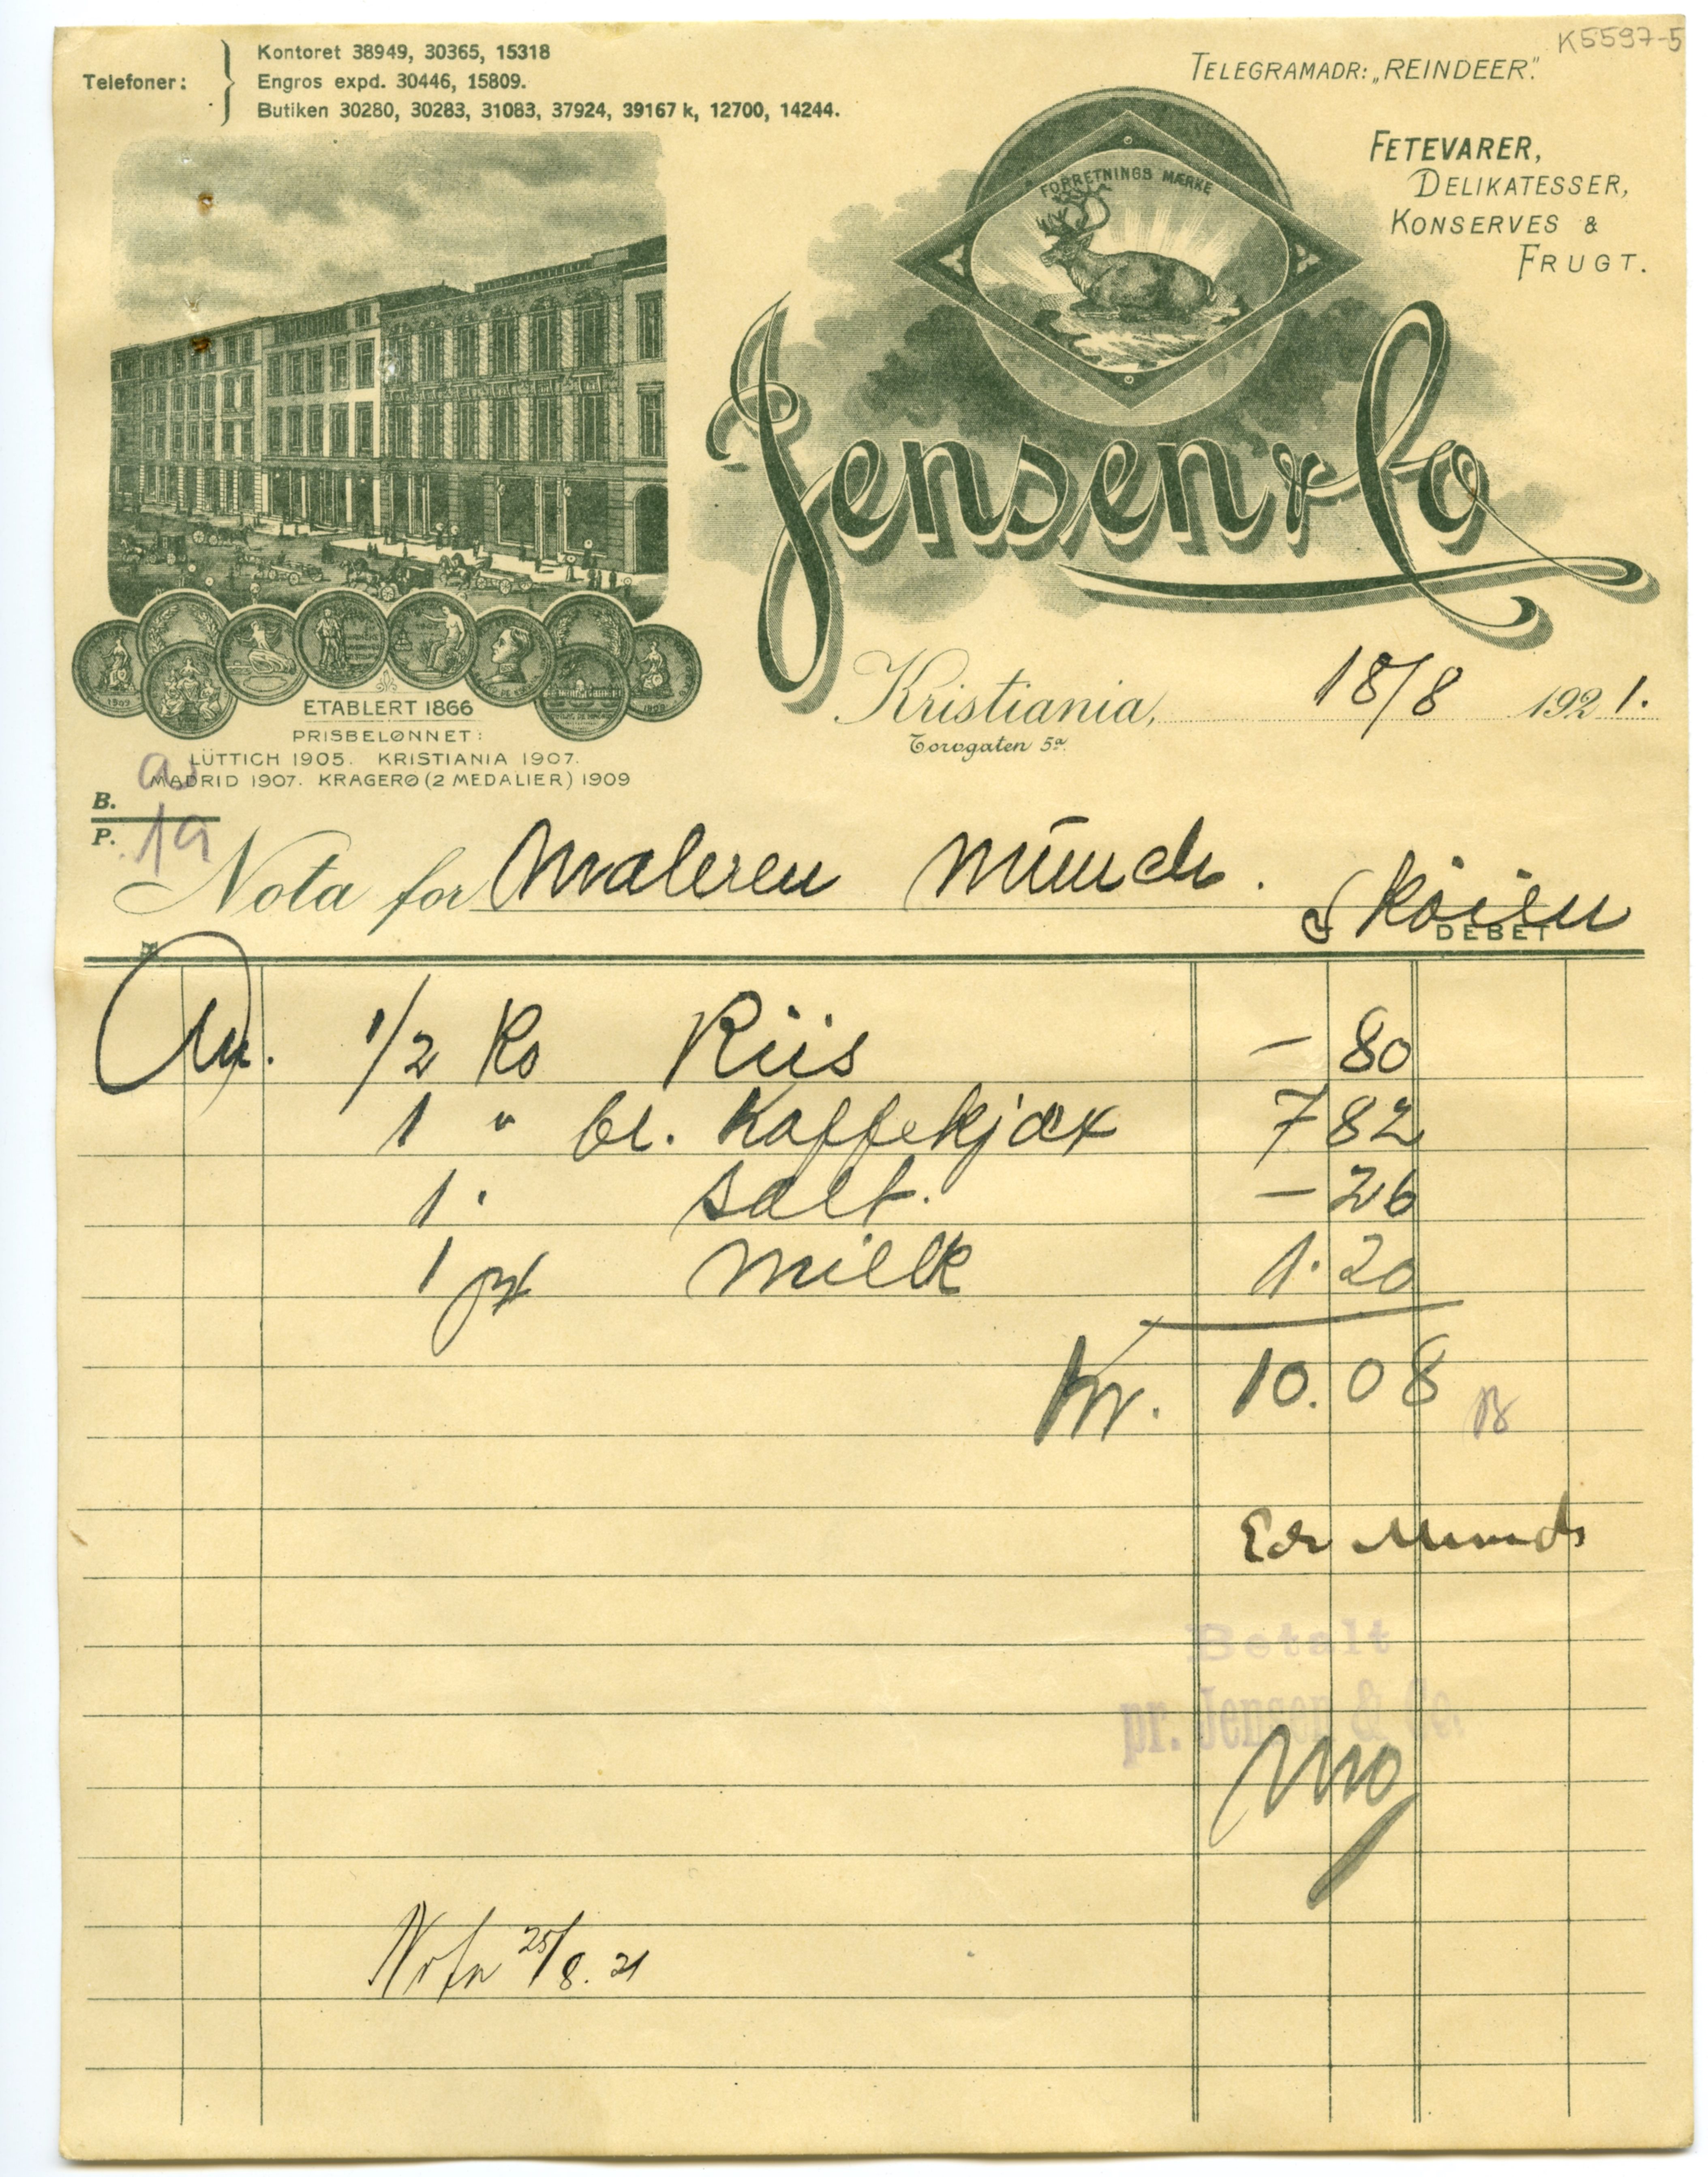 K5597-5
Telefoner:
Kontoret 38949, 30365, 15318
Engros expd. 30446, 15809.
Butiken 30280, 30283, 31083, 37924, 39167 k, 12700, 14244.
TELEGRAMADR: „REINDEER".
FETEVARER,
DELIKATESSER,
KONSERVES &
FRUGT.
FORRETNINGS MÆRKE
Jensen & Co
Kristiania, 18/8 1921.
Torvgaten 5a.
ETABLERT 1866
PRISBELØNNET:
LÜTTICH 1905. KRISTIANIA 1907.
MADRID 1907. KRAGERØ (2 MEDALIER) 1909
B.
P. 19
Nota for Maleren Münch. Skøien
DEBET
1/2 Ko Riis - 80
1 " bl. Kaffekjæx 7 82
1 " salt. - 26
1 milk 1.20
Kr. 10.08
Edv Munch
Betalt
pr. Jensen & Co.
25/8. 21